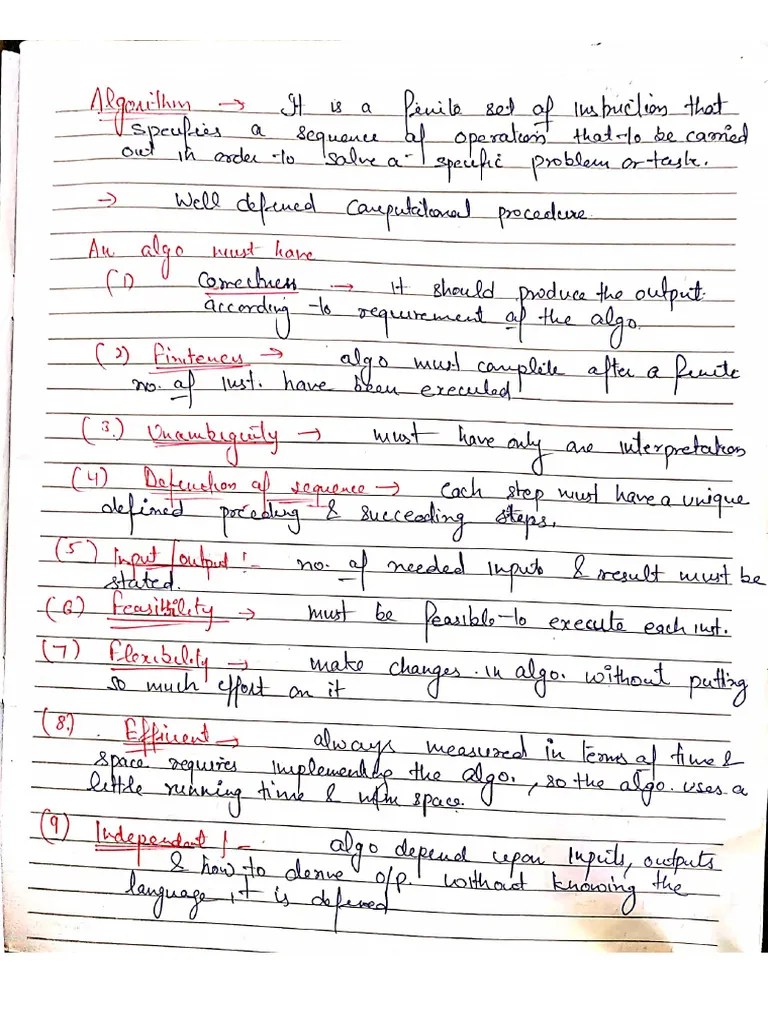 Algorithm → It is a finite set of instruction that
specifies a sequence of operation that to be carried
out in order to solve a specific problem or task.
→ Well defined computational procedure.
An algo must have
(1) Correctness → it should produce the output
according to requirement of the algo.
(2) Finiteness → algo must complete after a finite
no. of inst. have been executed
(3.) Unambiguity → must have only one interpretation
(4) Definition of sequence → each step must have a unique
defined preceding & succeeding steps.
(5) Input/output :- no. of needed inputs & result must be
stated.
(6) Feasibility → must be feasible to execute each inst.
(7) Flexibility → make changes in algo. without putting
so much effort on it
(8.) Efficient → always measured in terms of time &
space requires implementing the algo., so the algo. uses a
little running time & space.
(9) Independent :- algo depend upon inputs, outputs
& how to derive o/p. without knowing the
language, it is defined